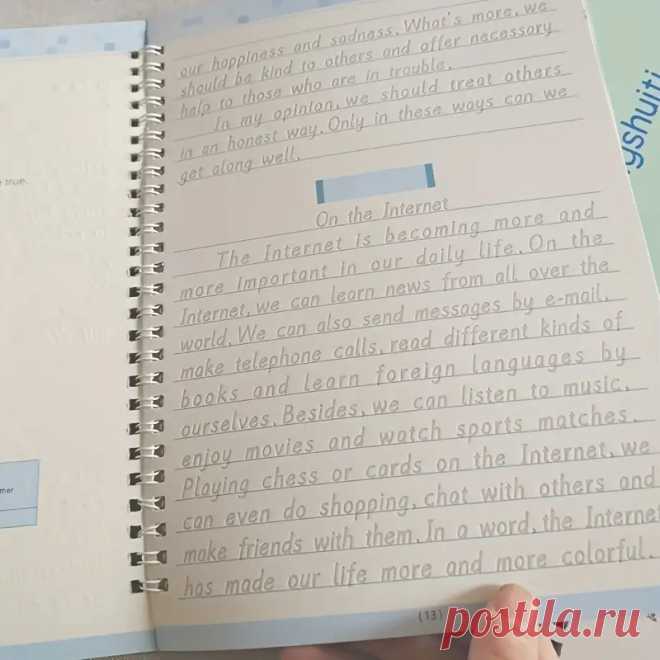 our happiness and sadness. What's more, we
should be kind to others and offer necessary
help to those who are in trouble.
In my opinion, we should treat others
in an honest way. Only in these ways can we
get along well.
On the Internet
The Internet is becoming more and
more important in our daily life. On the
Internet, we can learn news from all over the
world. We can also send messages by e-mail,
make telephone calls, read different kinds of
books and learn foreign languages by
ourselves. Besides, we can listen to music,
enjoy movies and watch sports matches.
Playing chess or cards on the Internet, we
can even do shopping, chat with others and
make friends with them. In a word, the Internet
has made our life more and more colorful.
(13)
true.
mer
yshuiti
postila.ru